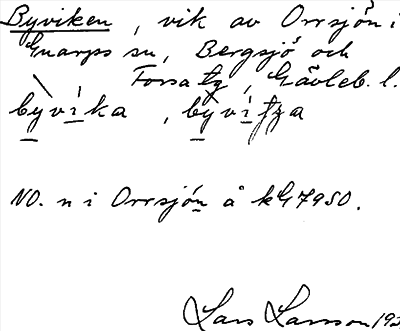 Byviken, vik av Orrsjön i
Gnarps sn, Bergsjö och
Forsa tg, Gävleb. l.
byvika, byvitza
NO. n i Orrsjön å kG7950.
Lars Larsson